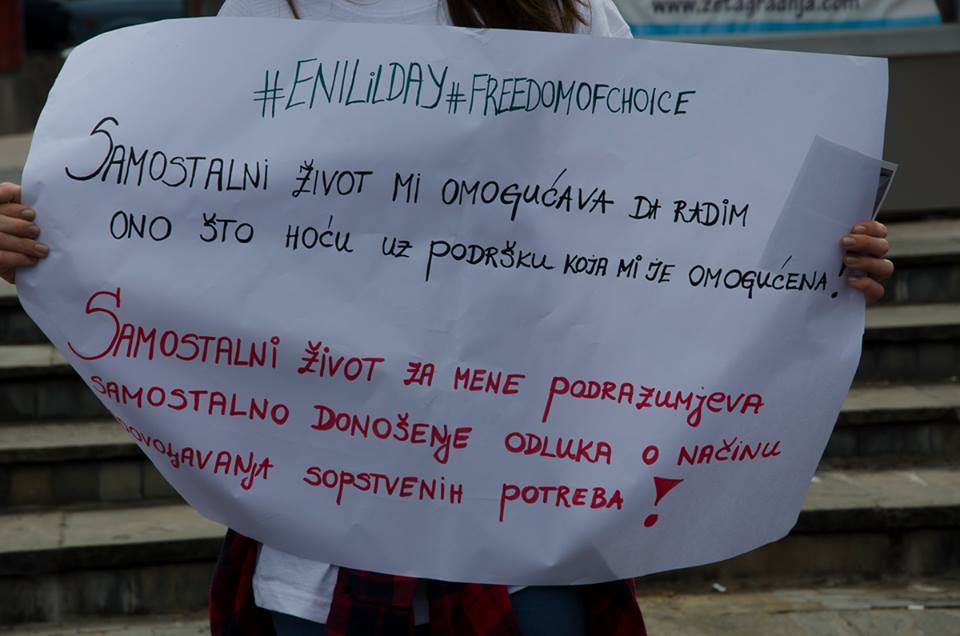 www.zetagradnja.com
#ENILilDAY#FREEDOMOFCHOICE
SAMOSTALNI ŽIVOT MI OMOGUĆAVA DA RADIM
ONO ŠTO HOĆU UZ PODRŠKU KOJA MI JE OMOGUĆENA!
SAMOSTALNI ŽIVOT ZA MENE PODRAZUMJEVA
SAMOSTALNO DONOŠENJE ODLUKA O NAČINU
SOPSTVENIH POTREBA!